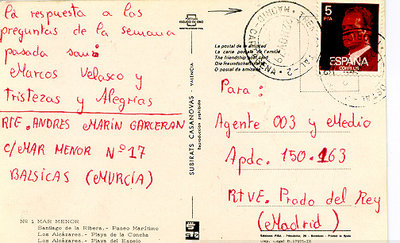 la respuesta a las
preguntas de la semana
pasada son:
Marcos Velasco y
Tristezas y Alegrias
RTE. ANDRES MARÍN GARCERAN
C/MAR MENOR Nº 17
BALSICAS (MURCÍA)
Nº 1 MAR MENOR
Santiago de la Ribera.- Paseo Marítimo
Los Alcázares.- Playa de la Concha
Los Alcázares.- Playa del Espejo
SUBIRATS CASANOVAS
VALENCIA
Reproducción prohibida
La postal de la amistad
La carte postale de l'amitié
The friendship post card
O postal da amizade
5
PTA
ESPAÑA
CORREOS
Para:
Agente 003 y Medio
Apdc. 150.163
RTVE. Prado del Rey
(Madrid)